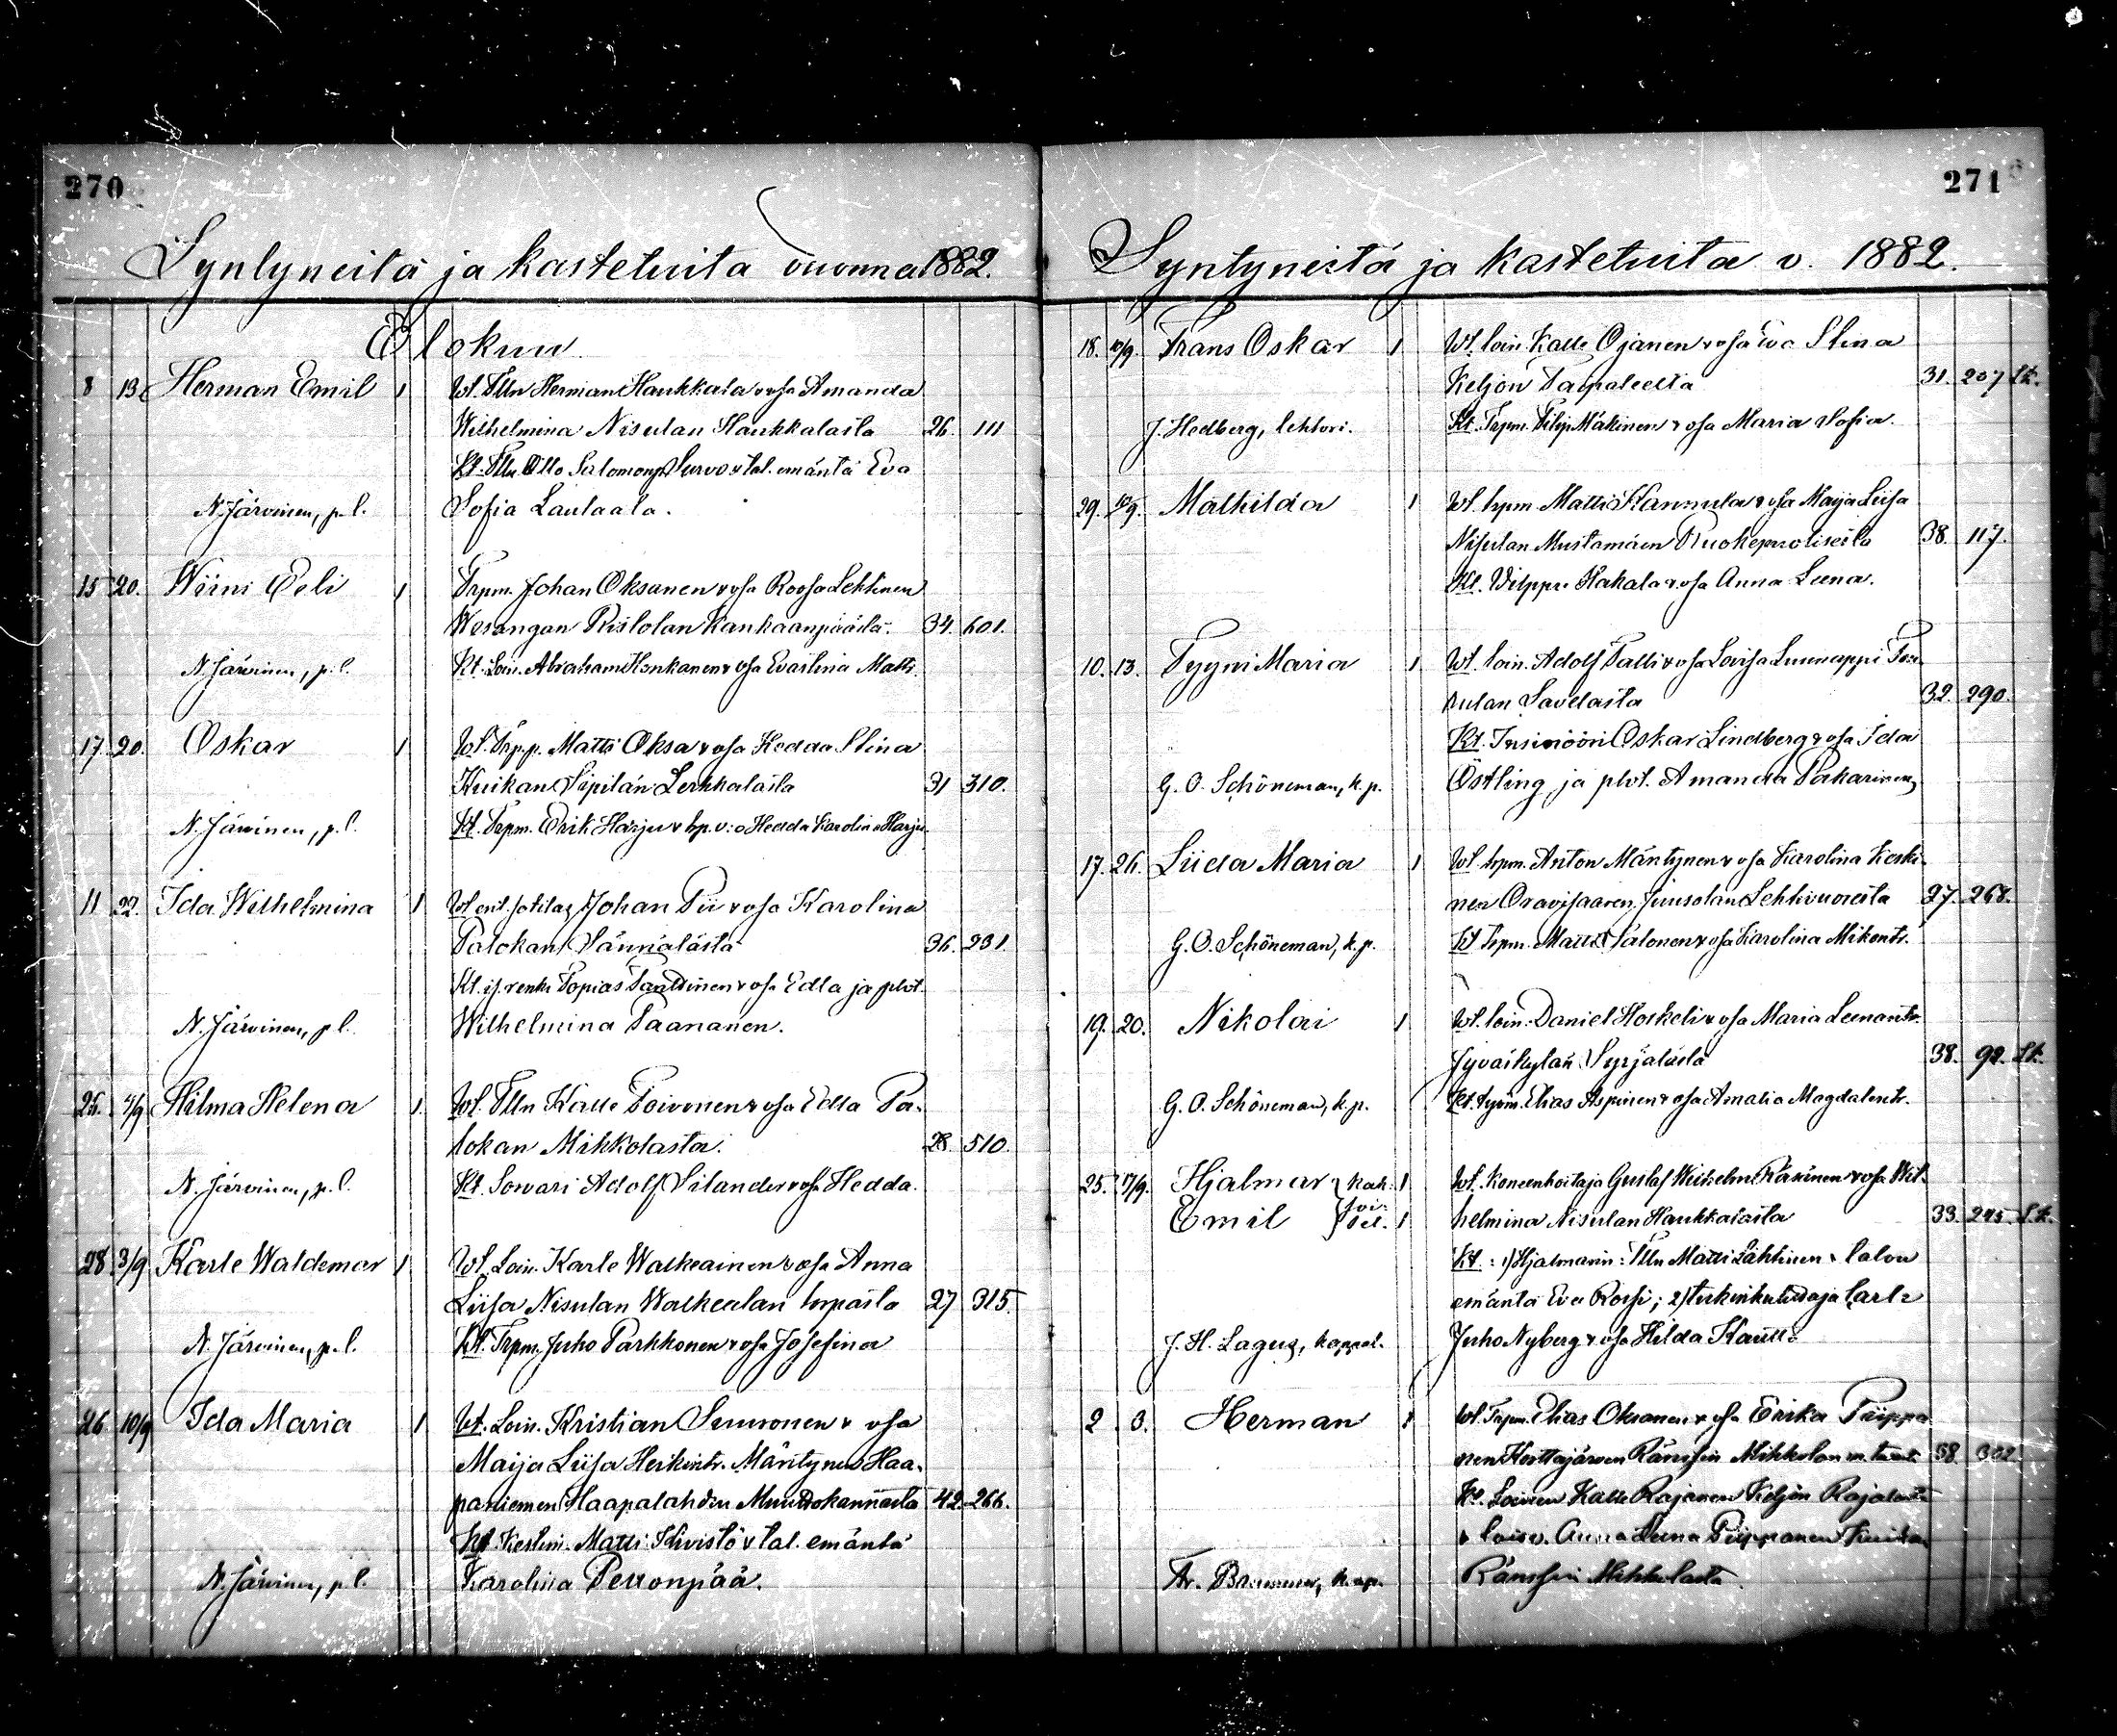 270
Syntyneitä ja kastetuita vuonna 1882.
Elokuu
8 13 Herman Emil 1 Wt. Tlln Herman Haukkala & vsa Amanda
Wilhelmina Nisulan Haukkalasta 26. 111
Kt. Tlln. Otto Salomonp. Survo & tal. emäntä Eva
N. Järvinen, p. l. Sofia Laulaala.
15 20. Wiini Eeli 1 Trpm. Johan Oksanen & vsa Roosa Lehtinen
Wesangan Ristolan Kankaanpäästä. 34. 601.
N. Järvinen, p. l. Kt. Loin. Abraham Honkanen & vsa Evastina Matti.
17 20. Oskar 1 Wt. Trp.p. Matti Oksa & vsa Hedda Stina
Kuikan Sipilän Lerkkalasta 31 310.
N. Järvinen, p. l. Kt. Trpm. Erik Harju & trp. v:o Hedda Karolina Harju.
11 22. Ida Wilhelmina 1 Wt. ent. sotilas Johan Pii & vsa Karolina
Palokan Sännälästä 36. 231.
Kt. it. renki Topias Tanttinen & vsa Edla ja plvt.
N. Järvinen, p. l. Wilhelmina Paananen.
26. 4/9 Hilma Helena 1 Wt. Tlln Kalle Toivonen & vsa Edla Pa-
lokan Mikkolasta. 28 510.
N. Järvinen, p. l. Kt. Sowari Adolf Silander & vsa Hedda.
28 3/9 Karle Waldemar 1 Wt. Loin. Karle Walkeainen & vsa Anna
Liisa Nisulan Walkealan torpasta 27 315.
N. Järvinen, p. l. Kt. Trpm. Juho Parkkonen & vsa Josefina
26 10/9 Ida Maria 1 Wt. Loin. Kristian Suuronen & vsa
Maija Liisa Heikintr. Mäntynen Haa-
paniemen Haapalahden Muurokannasta 42. 266.
Kt. Kestim. Matti Kivistö & tal. emäntä
N. Järvinen, p. l. Karolina Peuronpää.
271
Syntyneitä ja kastetuita v. 1882.
18. 10/9. Frans Oskar 1 Wt. loin. Kalle Ojanen & vsa Eva Stina
Keljon Taipaleelta 31. 207 Lk.
J. Hedberg, lehtori. Kt. Trpm. Filip Mäkinen & vsa Maria Sofia.
29. 10/9. Mathilda 1 Wt. trpm. Matti Kannula & vsa Maija Liisa
Nisulan Mustamäen Ruokepuroliselta 38. 117.
Kt. Wilppu Hakala & vsa Anna Leena.
10. 13. Tyyni Maria 1 Wt. loin. Adolf Talli & vsa Lovisa Luunappi Tou-
rulan Savelasta 32. 290.
Kt. Insinööri Oskar Lindberg & vsa Ida
G. O. Schöneman, k. p. Östling, ja plvt. Amanda Pakarinen,
17. 26. Liida Maria 1 Wt. trpm. Anton Mäntynen & vsa Karolina Keski-
nen Oravisaaren Juusolan Lehtivuorelta 27. 268.
G. O. Schöneman, k. p. Kt. Trpm. Matti Salonen & vsa Karolina Mikontr.
19. 20. Nikolai 1 Wt. loin. Daniel Hoskeli & vsa Maria Leenantr.
Jyväskylän Syrjälästä 38. 98. Lk.
G. O. Schöneman, k. p. Kt. työm. Elias Aspinen & vsa Amalia Magdalentr.
25. 17/9. Hjalmar } kak- 1 Wt. Koneenhoitaja Gustaf Wilhelm Räsänen & vsa Wil-
Emil } soi-set. 1 helmina Nisulan Haukkalasta 33. 245. Lk.
Kt.: 1) Hjalmarin: Tlln Matti Lahtinen & talon
emäntä Eva Rossi; 2) tukinkuljettaja Carl-
J. H. Lagus, kappal. Juho Nyberg & vsa Hilda Kautto
2 3. Herman 1 Wt. Trpm. Elias Oksanen & vsa Erika Piippo
nen Korttajärven Ränssin Mikkolan m. tuvat. 38. 302
Kt. Loinen Kalle Rajanen Keljon Rajalasta
& lois v. Anna Leena Piipponen Kuikan
Fr. Brummer, k. ap. Ränssin Mikkolasta.